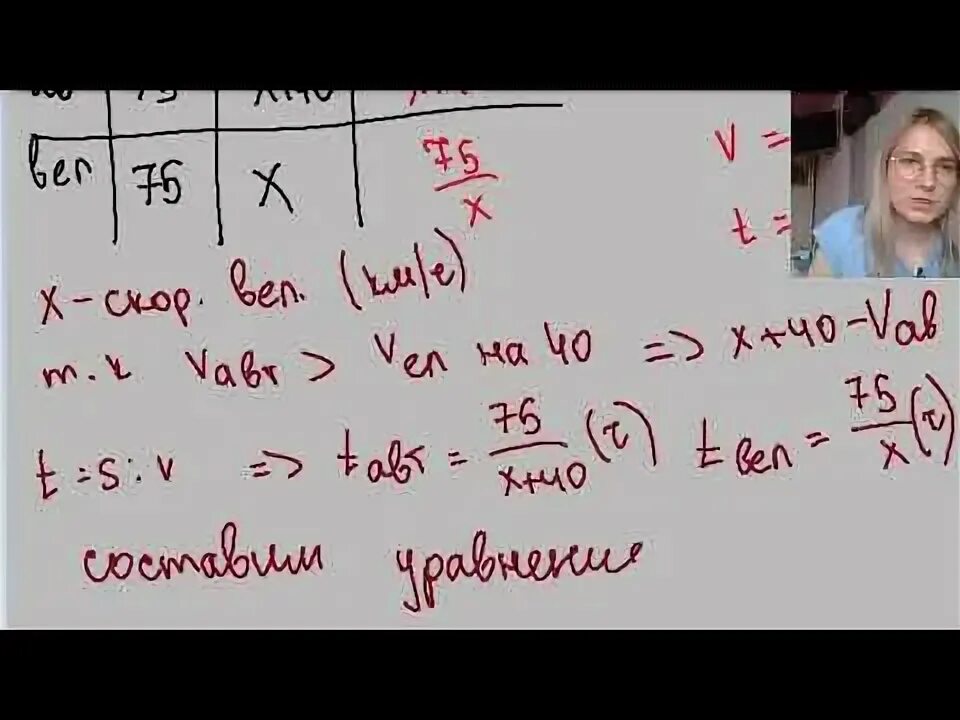 75 x+40
вел 75 x 75/x
v =
t =
x - скор. вел. (км/ч)
т.к Vавт > Vвел на 40 => x+40 - Vав
t = s : v => tавт = 75/(x+40) (ч) tвел = 75/x (ч)
составим уравнение